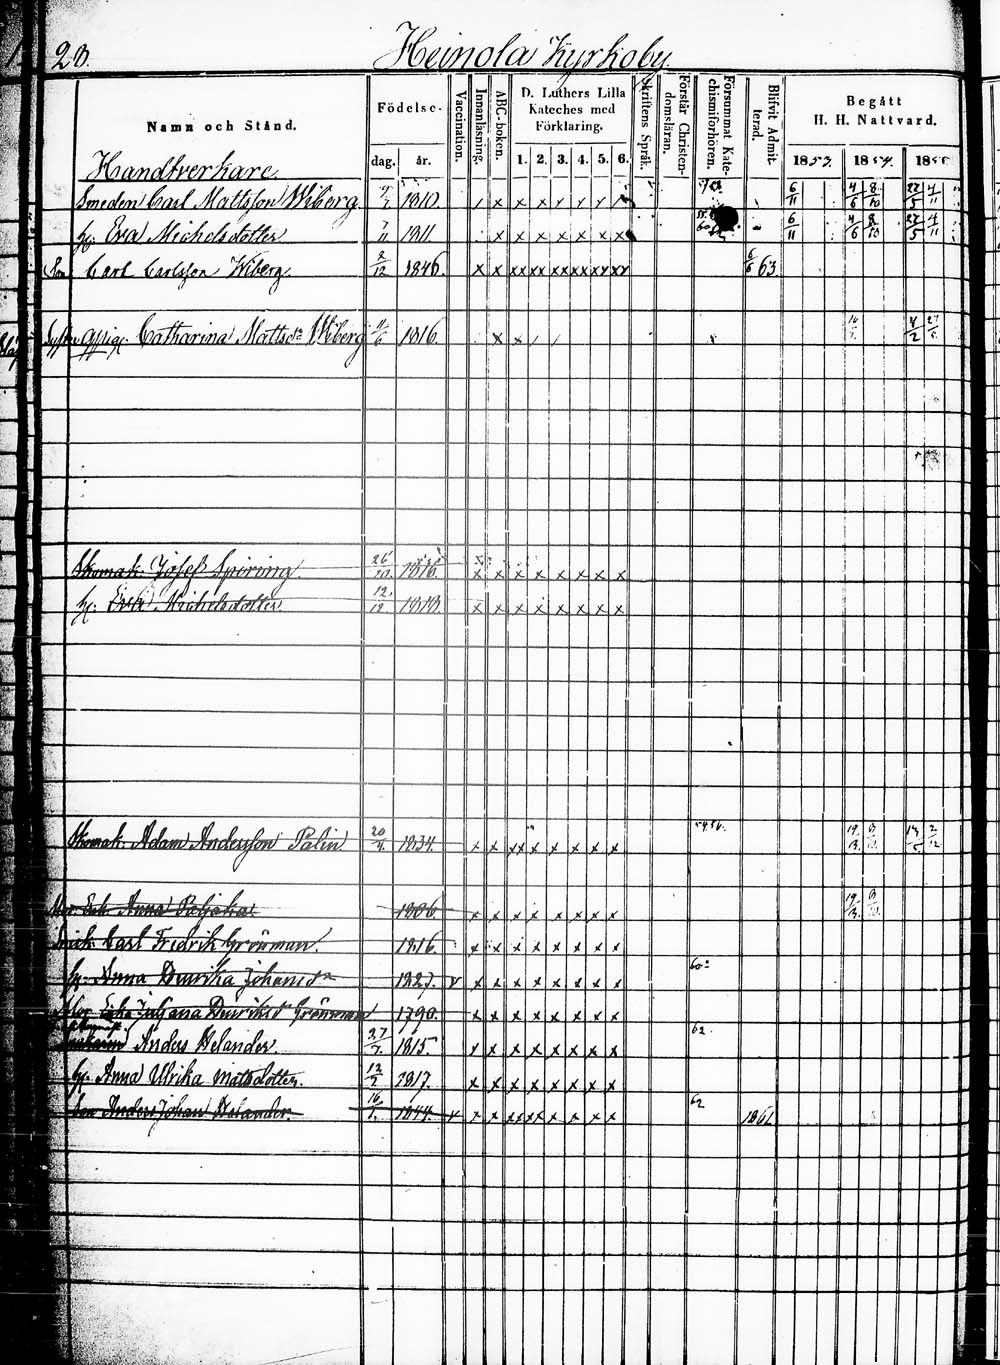 23. Heinola Kyrkoby
Namn och Stånd.
Födelse-
dag. år.
Vaccination.
Innanläsning.
ABC-boken.
D. Luthers Lilla Kateches med Förklaring.
1. 2. 3. 4. 5. 6.
Skriftens Språk.
Förstår Christendomsläran.
Försummat Katechismiförhören.
Blifvit Admitterad.
Begått H. H. Nattvard.
1853. 1854. 1855
Handtverkare.
Smeden Carl Mattsson Wiberg 1810. 6/11 4/6 8/10 22/5 4/11
H: Eva Michelsdotter 7/11 1811. x x x x x x x 6/11 4/6 8/10 22/5 4/11
Son Carl Carlsson Wiberg. 2/12 1846. x x xx xx xx xx xx xx 6/6 63
Catharina Mattsdr Wiberg 11/6 1816. x x
Skomak: Josef Spiring. 26/10 1816. x x x x x x x x
H: Eva Michelsdotter 12/12 1818. x x x x x x x x
Skomak: Adam Andersson Palin 20/4. 1834. x x xx x x x x x 54.56.
Anna Paljaka. 1806 x x x x x x x x
Carl Fredrik Grönman. 1816. x x x x x x x x
H: Anna Henrika Johansdr 1827. v x x x x x x x x 60
Enka Juliana Henriksdr Grönman 1790. x x x x x x x x
Anders Helander. 27/7. 1815. x x x x x x x x 62.
H: Anna Ulrika Mattsdotter. 12/7 1817. x x x x x x x x
Son Anders Johan Helander. 16/1. 1844. v x x xx xx x x x x 62 1861